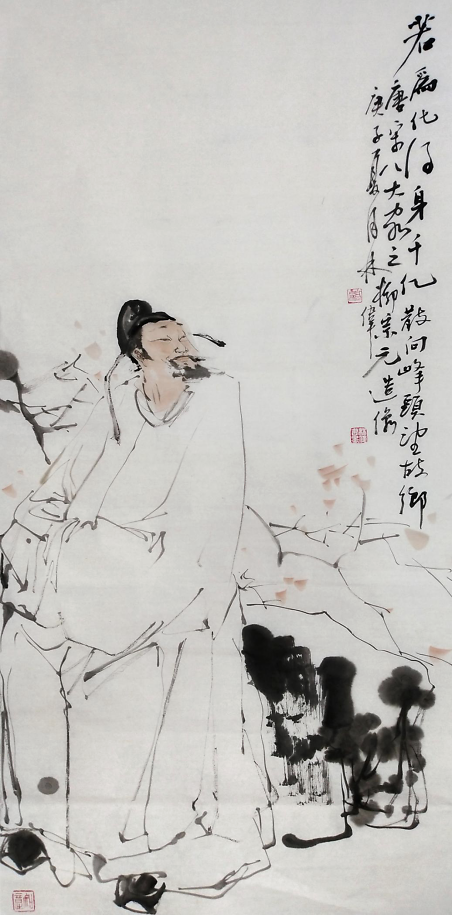 若为化得身千亿散向峰頭望故鄉
唐宋八大家之柳宗元造像
庚子夏月林偉